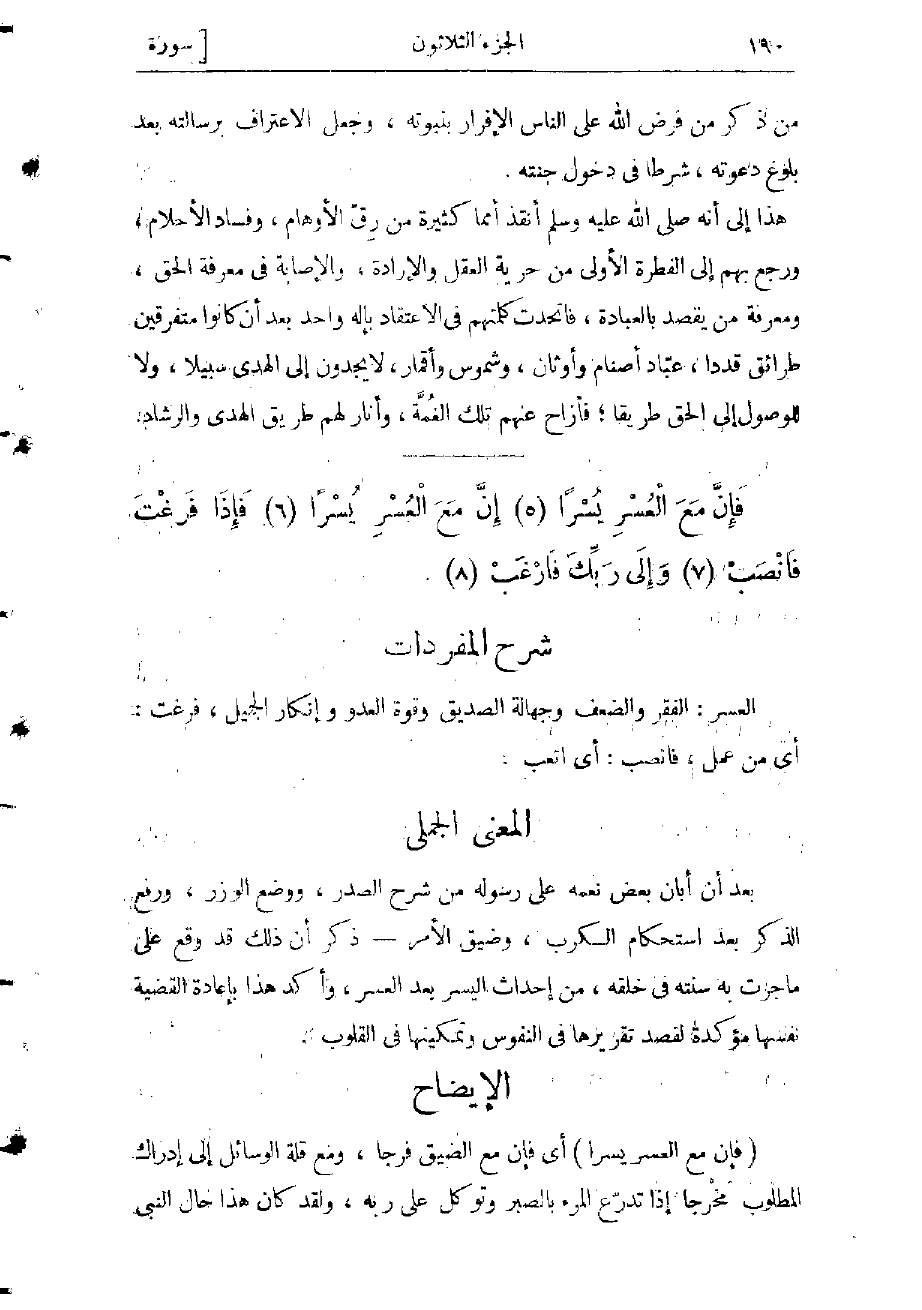 ١٩٠ الجزء الثلاثون [ سورة
من ذكر من فرض الله على الناس الإقرار بنبوته ، وجعل الاعتراف برسالته بعد
بلوغ دعوته ، شرطا فى دخول جنته .
هذا إلى أنه صلى الله عليه وسلم أنقذ أمما كثيرة من رقّ الأوهام ، وفساد الأحلام ،
ورجع بهم إلى الفطرة الأولى من حرية العقل والإرادة ، والإصابة فى معرفة الحق ،
ومعرفة من يقصد بالعبادة ، فاتحدت كلمتهم فى الاعتقاد بإله واحد بعد أن كانوا متفرقين
طرائق قددا ، عبّاد أصنام وأوثان ، وشموس وأقمار، لايجدون إلى الهدى سبيلا ، ولا
للوصول إلى الحق طريقا ؛ فأزاح عنهم تلك الغُمَّة ، وأنار لهم طريق الهدى والرشاد.
فَإِنَّ مَعَ الْعُسْرِ يُسْرًا (٥) إِنَّ مَعَ الْعُسْرِ يُسْرًا (٦) فَإِذَا فَرَغْتَ
فَانْصَبْ (٧) وَإِلَى رَبِّكَ فَارْغَبْ (٨) .
شرح المفردات
العسر : الفقر والضعف وجهالة الصديق وقوة العدو وإنكار الجميل ، فرغت :
أى من عمل ، فانصب : أى اتعب .
المعنى الجملى
بعد أن أبان بعض نعمه على رسوله من شرح الصدر ، ووضع الوزر ، ورفع
الذكر بعد استحكام الكرب ، وضيق الأمر — ذكر أن ذلك قد وقع على
ماجرت به سنته فى خلقه ، من إحداث اليسر بعد العسر ، وأكد هذا بإعادة القضية
نفسها مؤكدة لقصد تقريرها فى النفوس وتمكينها فى القلوب .
الإيضاح
( فإن مع العسر يسرا ) أى فإن مع الضيق فرجا ، ومع قلة الوسائل إلى إدراك
المطلوب مَخْرجا إذا تدرّع المرء بالصبر وتوكل على ربه ، ولقد كان هذا حال النبى